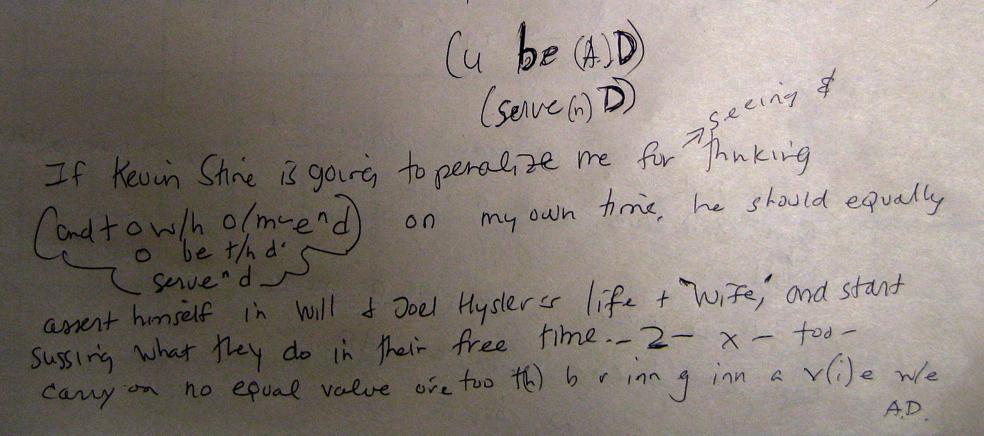 (u be (A) D)
(serve (n) D)
seeing &
If Kevin Stine is going to penalize me for thnking
(and t o w/h o/m~e n d) on my own time, he should equally
o be t/h d'
serve n d
assert himself in Will & Joel Hysler's life + "Wife," and start
sussing what they do in their free time.- 2 - x - too -
carry on no equal value are too t(h) b r inn g inn a v(i)e w/e
A.D.